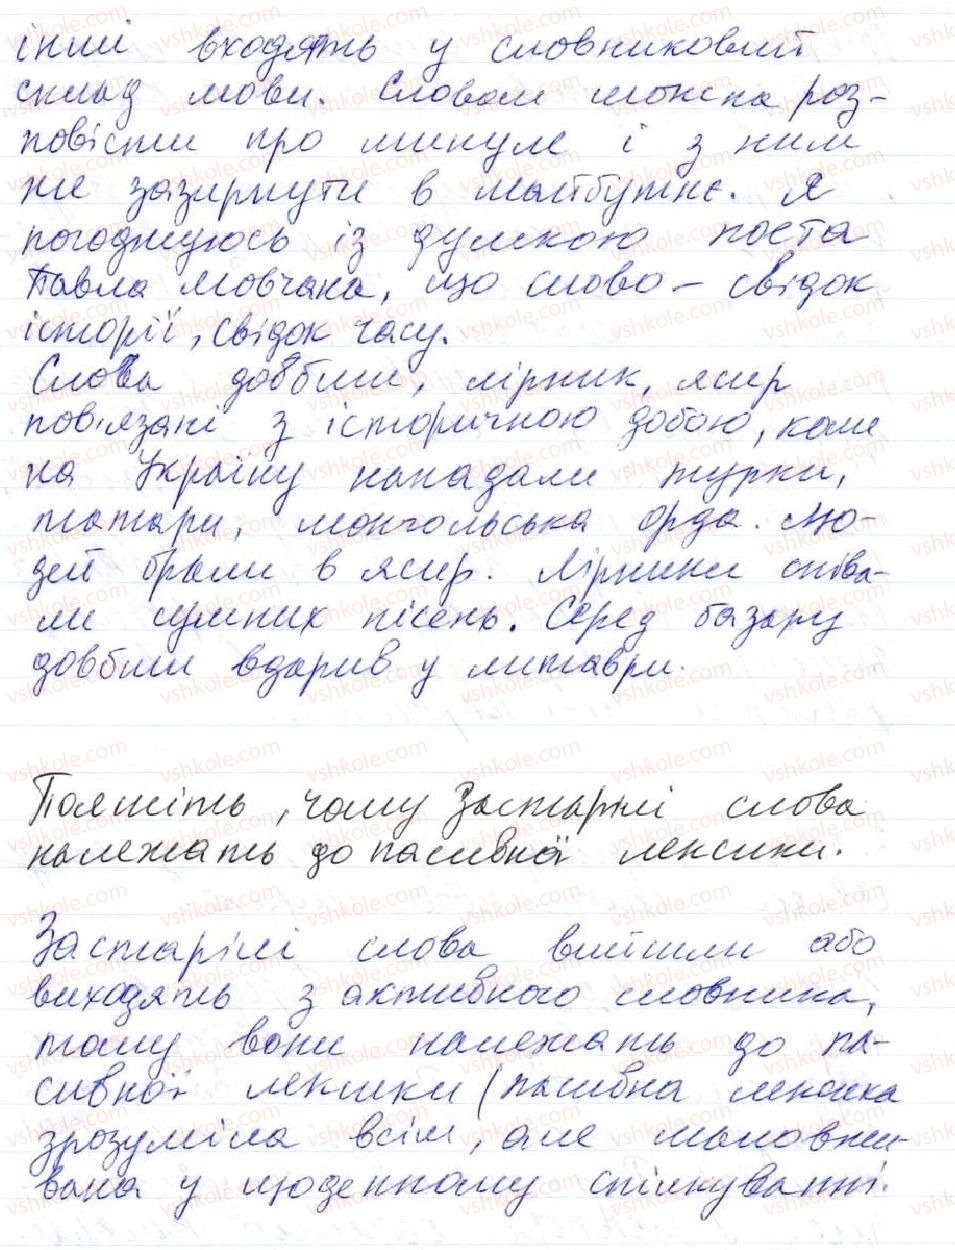 інші входять у словниковий
склад мови. Словом можна роз-
повісти про минуле і з ним
же зазирнути в майбутнє. Я
погоджуюсь із думкою поета
Павла Мовчана, що слово – свідок
історії, свідок часу.
Слова довбиш, лірник, ясир
пов'язані з історичною добою, коли
на Україну нападали турки,
татари, монгольська орда. Лю-
дей брали в ясир. Лірники співа-
ли сумних пісень. Серед базару
довбиш вдарив у литаври.
Поясніть, чому застарілі слова
належать до пасивної лексики.
Застарілі слова вийшли або
виходять з активного словника,
тому вони належать до па-
сивної лексики (пасивна лексика
зрозуміла всім, але маловжи-
вана у щоденному спілкуванні.